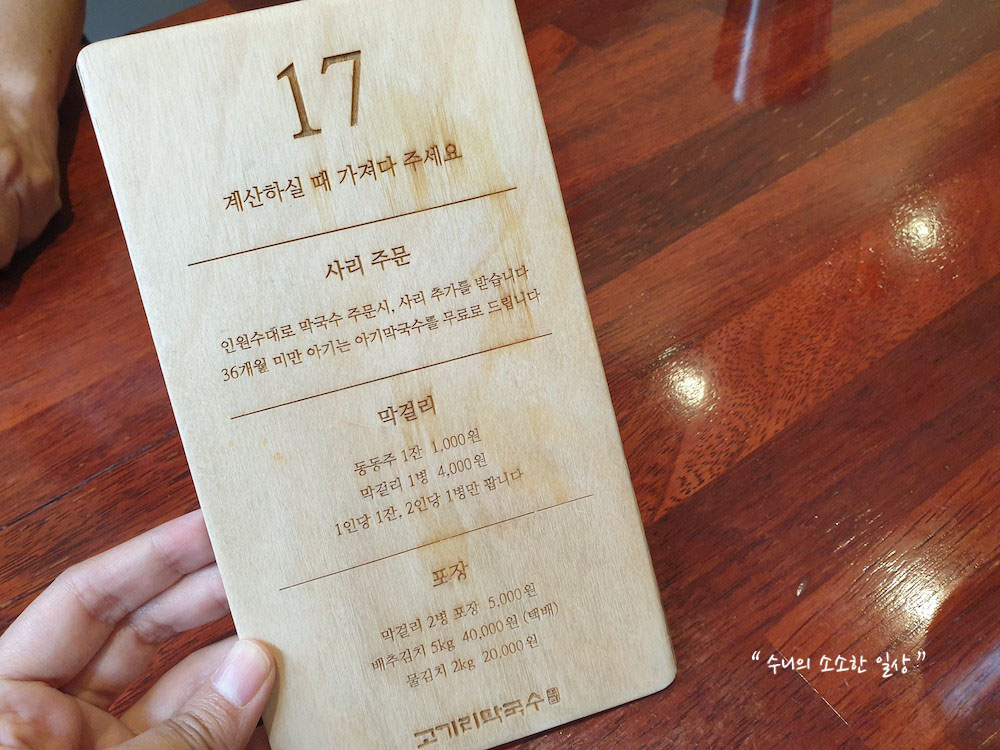 17
계산하실 때 가져다 주세요
사리 주문
인원수대로 막국수 주문시, 사리 추가를 받습니다
36개월 미만 아기는 아기막국수를 무료로 드립니다
막걸리
동동주 1잔 1,000원
막걸리 1병 4,000원
1인당 1잔, 2인당 1병만 팝니다
포장
막걸리 2병 포장 5,000원
배추김치 5kg 40,000원 (택배)
물김치 2kg 20,000원
고기리막국수
“ 수니의 소소한 일상 ”